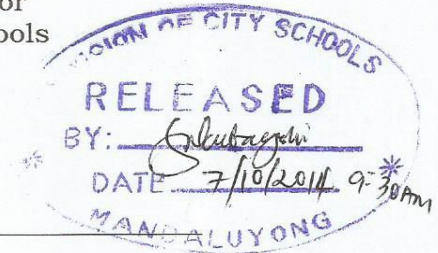 or
ools
DIVISION OF CITY SCHOOLS
RELEASED
BY:
DATE 7/10/2014 9:30 AM
MANDALUYONG